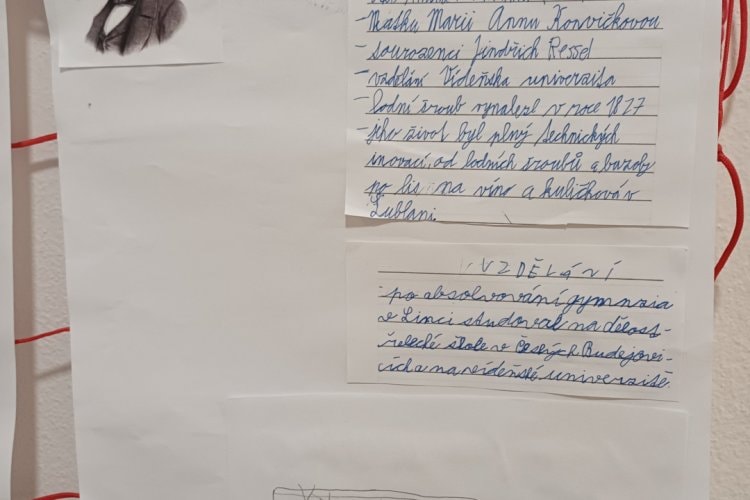 -Matku Marii Annu Konvičkovou
-sourozenci Jindřich Ressl
-vzdělání Vídeňska univerzita
-lodní šroub vynalezl v roce 1827
-jeho život byl plný technických
inovací, od lodních šroubů a
po lis na víno a v
Lublani.
VZDĚLÁNÍ
po absolvování gymnzia
v Linci studoval na dělost-
řelecké škole v Českých Budejovi-
cích a na vídeňské univerzitě.